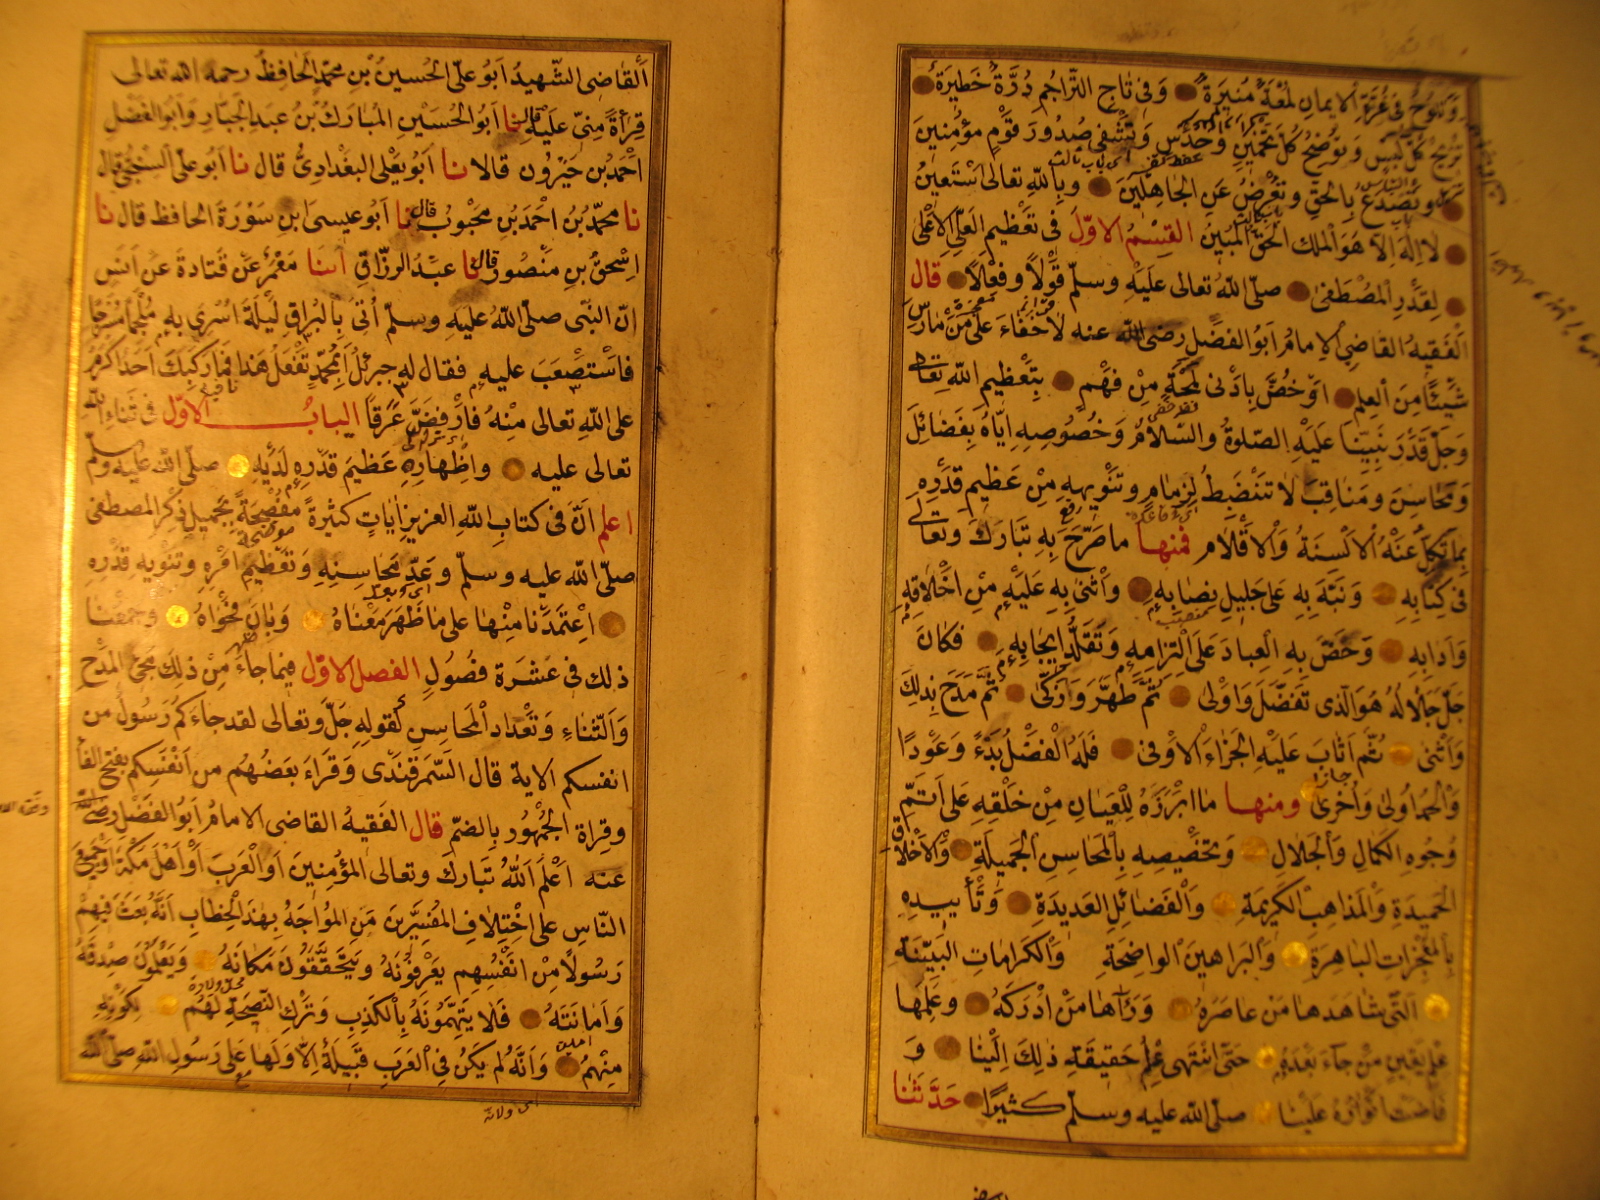 وَيَلُوحُ فى غُرَّةِ الايمانِ لُمْعَةٌ مُنيرَةٌ وَفى تَاجِ التَّرَاجِمِ دُرَّةٌ خَطِيرَةٌ
تُزِيحُ كُلَّ لَبْسٍ وَتُوضِحُ كُلَّ تَخْمِينٍ وَحَدْسٍ وَتَشْفِى صُدُورَ قَوْمٍ مُؤْمِنينَ
وتَصْدَعُ بِالحَقِّ وَتُعْرِضُ عَنِ الجَاهِلِينَ وَبِاللهِ تعالى اَسْتَعينُ
لا اِلٰهَ اِلاّ هُوَ المَلِكُ الحَقُّ المُبِينُ القِسْمُ الاوّلُ فى تَعْظِيمِ العَلِىِّ الاَعْلى
لِقَدْرِ المُصْطَفى صلّى اللهُ تعالى عَلَيْهِ وسلّم قَوْلاً وفِعْلاً قال
الفَقِيهُ القَاضِى الاِمامُ اَبُو الفَضْلِ رضى الله عنه لاخَفَاءَ عَلى مَنْ مَارَسَ
شَيْئًا مِنَ العِلْمِ اَوْ خُصَّ بِاَدْنى لَمْحَةٍ مِنْ فَهْمٍ بِتَعْظِيمِ اللهِ تعالى
وَجَلَّ قَدْرَ نَبِيِّنَا عَلَيْهِ الصّلوةُ والسَّلامُ وَخُصُوصِهِ اِيّاهُ بِفَضَائِلَ
وَمَحَاسِنَ ومَنَاقِبَ لا تَنْضَبِطُ لِزِمَامٍ وتَنْوِيهِهِ مِنْ عَظِيمِ قَدْرِهِ
بِمَا تَكِلُّ عَنْهُ الاَلْسِنَةُ وَالاَقْلامُ فمنها ما صَرَّحَ بِهِ تَبَارَكَ وتعالى
فى كِتَابِهِ وَنَبَّهَ بِهِ عَلى جَلِيلِ نِصَابِهِ وَاَثْنى بِهِ عَلَيْهِ مِنْ اَخْلاقِهِ
وَادَابِهِ وَحَضَّ بِهِ العِبَادَ عَلَى الْتِزَامِهِ وَتَقَلُّدِ ايجَابِهِ فكَانَ
جَلَّ جَلالُهُ هُوَ الّذى تَفَضَّلَ وَاَوْلى ثُمَّ طَهَّرَ وَزَكّى ثُمَّ مَدَحَ بِذلِكَ
وَاَثْنى ثُمَّ اَثَابَ عَلَيْهِ الجَزَاءَ الاَوْفى فَلَهُ الفَضْلُ بَدْءً وَعَوْدًا
وَالْحَمْدُ اُولى وَاُخْرى ومنها ما اَبْرَزَهُ لِلْعَيَانِ مِنْ خَلْقِهِ عَلى اَتَمِّ
وُجُوهِ الكَمَالِ وَالجَلالِ وَتَخْصِيصِهِ بِالْمَحَاسِنِ الجَمِيلَةِ وَالاَخْلاقِ
الحَمِيدَةِ وَالمَذَاهِبِ الكَرِيمَةِ وَالْفَضَائِلِ العَدِيدَةِ وَتَأْييدِهِ
بِالْمُعْجِزَاتِ البَاهِرَةِ وَالبَرَاهِينِ الوَاضِحَةِ وَالكَرَامَاتِ البَيِّنَةِ
الَّتى شَاهَدَهَا مَنْ عَاصَرَهُ وَرَاٰهَا مَنْ اَدْرَكَهُ وَعَلِمَهَا
عِلْمَ يَقينٍ مَنْ جَاءَ بَعْدَهُ حَتّى انْتَهى عِلْمُ حَقِيقَةِ ذلِكَ اِلَيْنَا وَ
فَاضَتْ اَنْوَارُهُ عَلَيْنَا صلّى الله عليه وسلّم كَثيرًا حَدَّثَنَا
اَلْقَاضِى الشَّهِيدُ اَبُو عَلِىٍّ الحُسَينُ بْنُ محمّدٍ الحَافِظُ رحمه الله تعالى
قِرَاءَةً مِنّى عَلَيْهِ قال نا اَبُو الحُسَيْنِ المُبَارَكُ بْنُ عَبدِ الجَبّارِ وَاَبُو الفَضْلِ
اَحْمَدُ بن خَيْرُون قالا نا اَبُو يَعْلى البَغْدَادِىُّ قال نا اَبُو عَلى السِّنْجِىُّ قال
نا محمّدُ بْنُ اَحْمَدَ بنِ مَحْبُوبٍ قال نا اَبُو عيسى بنِ سَوْرَةَ الحافظ قال نا
اِسْحقُ بنِ مَنْصُور قال نا عَبْدُ الرزّاقِ اَنبا مَعْمَرٌ عَنْ قَتَادَةَ عَنْ اَنَسٍ
انّ النبّى صلّى اللهُ عليهِ وسلّم اُتِىَ بِالبُرَاقِ لَيْلَةَ اُسْرِىَ بِهِ مُلْجَمًا مُسْرَجًا
فَاسْتَصْعَبَ عليهِ فقال له جبرئيلُ اَبِمُحَمَّدٍ تَفْعَلُ هَذا فَمَا رَكِبَكَ اَحَدٌ اَكْرَمُ
على اللهِ تعالى مِنْهُ فَارْفَضَّ عَرَقًا البابُ الاوّل فى ثَنَاءِ اللهِ
تعالى عليه واِظْهَارِهِ عَظِيمَ قَدْرِهِ لَدَيْهِ صلى الله عليه وسلم
اعلم انَّ فى كتابِ اللهِ العزيزِ اٰيَاتٍ كثيرَةً مُفْصِحَةً بِجَميلِ ذِكْرِ المصطفى
صلّى الله عليه وسلّم وَعَدِّ مَحَاسِنِهِ وَتَعْظِيمِ اَمْرِهِ وَتَنْوِيهِ قَدْرِهِ
اِعْتَمَدْنَا مِنْهَا على مَا ظَهَرَ مَعْنَاهُ وَبَانَ فَحْوَاهُ وجَمَعْنَا
ذلك فى عَشَرَةِ فُصُولٍ الفصل الاوّل فيما جاءَ مِنْ ذلِكَ مَجِئَ المَدْحِ
وَالثّنَاءِ وَتَعْدَادِ الْمَحَاسِنِ كَقولِهِ جَلَّ وتعالى لقد جاءكم رَسُولٌ من
انفسكم الاية قال السَّمَرقَنْدى وَقَرَاءَ بَعضُهُم من اَنْفَسِكُم بفتح الفا
وقِراةُ الجُمْهُورِ بِالضمّ قال الفَقيهُ القاضى الامامُ اَبُو الفَضْلِ رضى الله
عنه اَعْلَمَ اللهُ تَبَاركَ وتعالى المؤمِنينَ اَوِ الْعَرَبَ اَوْ اَهْلَ مَكَّةَ اَوْ جَمِيعَ
النّاسِ على اخْتِلافِ المُفَسِّرِينَ مَنِ المُوَاجَهُ بِهذَا الخِطَابِ اَنَّهُ بَعَثَ فيهِمْ
رَسُولاً مِنْ اَنْفُسِهِم يَعْرِفُونَهُ وَيَتَحَقَّقُونَ مَكَانَهُ وَيَعْلَمُونَ صِدْقَهُ
وَاَمَانَتَهُ فَلا يَتَّهِمُونَهُ بِالْكَذِبِ وَتَرْكِ النَّصِيحَةِ لَهُم لِكَوْنِهِ
مِنْهُمْ وَاَنَّهُ لم يَكُنْ فِى الْعَرَبِ قَبِيلَةٌ اِلاّ وَلَهَا عَلى رَسُولِ اللهِ صلّى الله